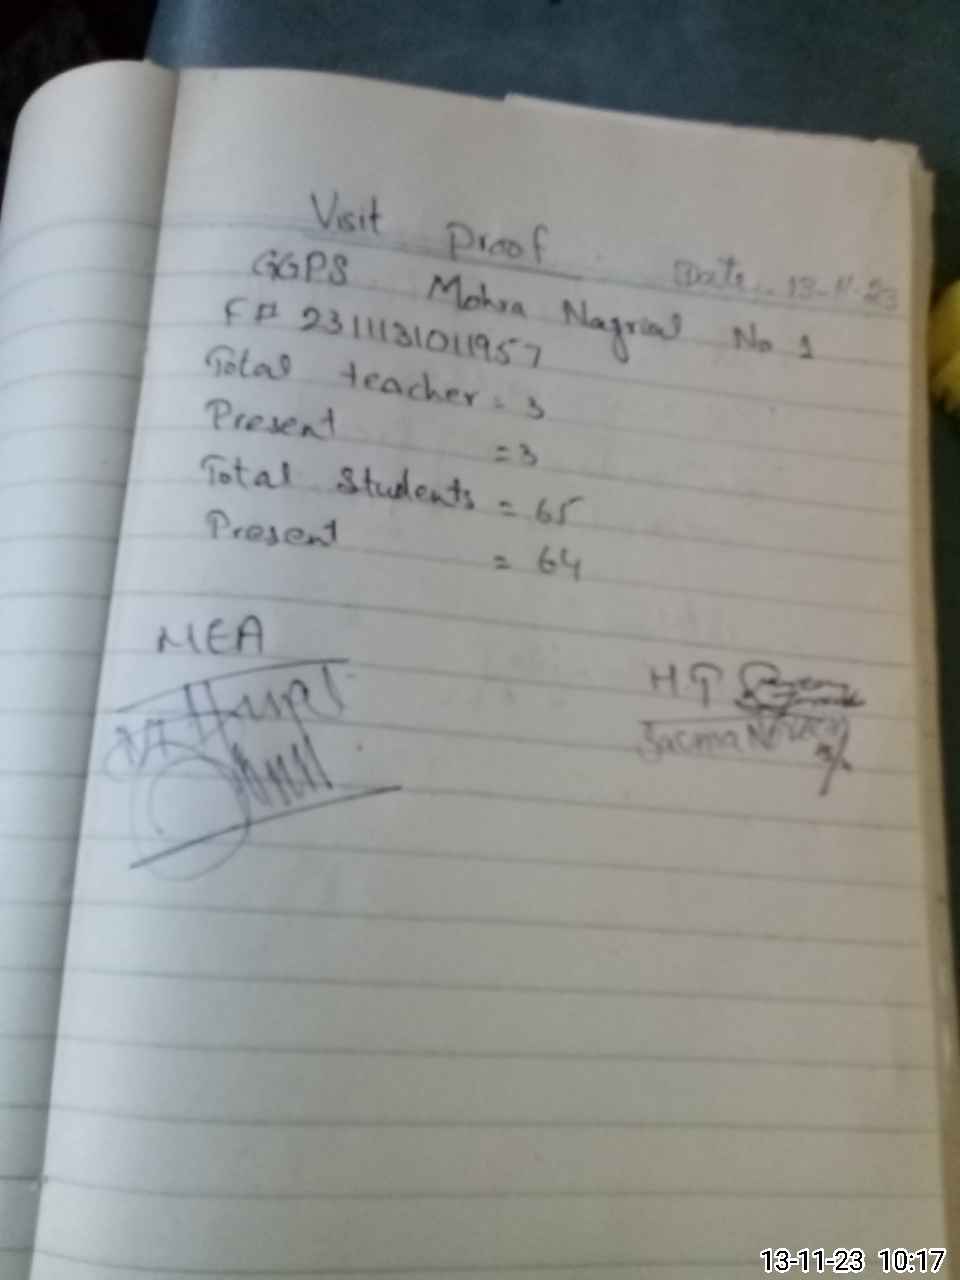 Visit Proof
Date. 13-11-23
GGPS Mohra Nagrial No 1
F# 2311131011957
Total teacher = 3
Present = 3
Total Students = 65
Present = 64
MEA
H.T
13-11-23 10:17